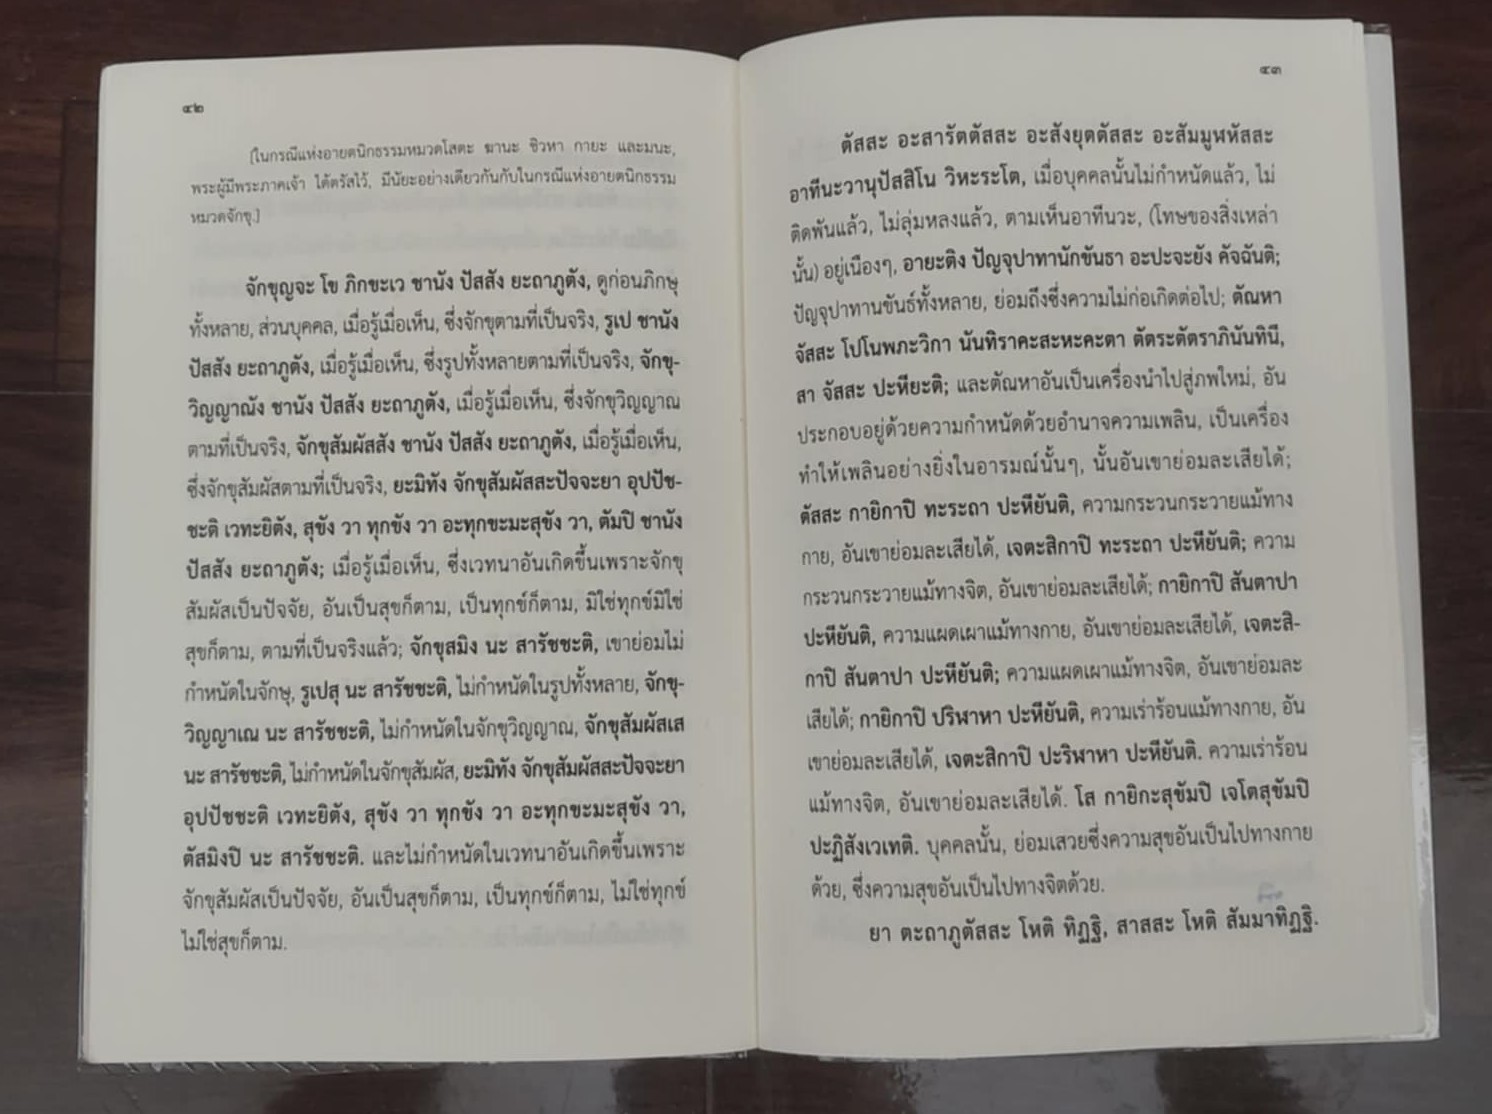 ๔๒
[ในกรณีแห่งอายตนิกธรรมหมวดโสตะ ฆานะ ชิวหา กายะ และมนะ,
พระผู้มีพระภาคเจ้า ได้ตรัสไว้, มีนัยะอย่างเดียวกันกับในกรณีแห่งอายตนิกธรรม
หมวดจักขุ.]
จักขุญจะ โข ภิกขะเว ชานัง ปัสสัง ยะถาภูตัง, ดูก่อนภิกษุ
ทั้งหลาย, ส่วนบุคคล, เมื่อรู้เมื่อเห็น, ซึ่งจักขุตามที่เป็นจริง, รูเป ชานัง
ปัสสัง ยะถาภูตัง, เมื่อรู้เมื่อเห็น, ซึ่งรูปทั้งหลายตามที่เป็นจริง, จักขุ-
วิญญาณัง ชานัง ปัสสัง ยะถาภูตัง, เมื่อรู้เมื่อเห็น, ซึ่งจักขุวิญญาณ
ตามที่เป็นจริง, จักขุสัมผัสสัง ชานัง ปัสสัง ยะถาภูตัง, เมื่อรู้เมื่อเห็น,
ซึ่งจักขุสัมผัสตามที่เป็นจริง, ยะมิทัง จักขุสัมผัสสะปัจจะยา อุปปัช-
ชะติ เวทะยิตัง, สุขัง วา ทุกขัง วา อะทุกขะมะสุขัง วา, ตัมปิ ชานัง
ปัสสัง ยะถาภูตัง; เมื่อรู้เมื่อเห็น, ซึ่งเวทนาอันเกิดขึ้นเพราะจักขุ
สัมผัสเป็นปัจจัย, อันเป็นสุขก็ตาม, เป็นทุกข์ก็ตาม, มิใช่ทุกข์มิใช่
สุขก็ตาม, ตามที่เป็นจริงแล้ว; จักขุสมิง นะ สารัชชะติ, เขาย่อมไม่
กำหนัดในจักษุ, รูเปสุ นะ สารัชชะติ, ไม่กำหนัดในรูปทั้งหลาย, จักขุ-
วิญญาเณ นะ สารัชชะติ, ไม่กำหนัดในจักขุวิญญาณ, จักขุสัมผัสเส
นะ สารัชชะติ, ไม่กำหนัดในจักขุสัมผัส, ยะมิทัง จักขุสัมผัสสะปัจจะยา
อุปปัชชะติ เวทะยิตัง, สุขัง วา ทุกขัง วา อะทุกขะมะสุขัง วา,
ตัสมิงปิ นะ สารัชชะติ. และไม่กำหนัดในเวทนาอันเกิดขึ้นเพราะ
จักขุสัมผัสเป็นปัจจัย, อันเป็นสุขก็ตาม, เป็นทุกข์ก็ตาม, ไม่ใช่ทุกข์
ไม่ใช่สุขก็ตาม.
๔๓
ตัสสะ อะสารัตตัสสะ อะสังยุตตัสสะ อะสัมมูฬหัสสะ
อาทีนะวานุปัสสิโน วิหะระโต, เมื่อบุคคลนั้นไม่กำหนัดแล้ว, ไม่
ติดพันแล้ว, ไม่ลุ่มหลงแล้ว, ตามเห็นอาทีนวะ, (โทษของสิ่งเหล่า
นั้น) อยู่เนืองๆ, อายะติง ปัญจุปาทานักขันธา อะปะจะยัง คัจฉันติ;
ปัญจุปาทานขันธ์ทั้งหลาย, ย่อมถึงซึ่งความไม่ก่อเกิดต่อไป; ตัณหา
จัสสะ โปโนพภะวิกา นันทิราคะสะหะคะตา ตัตระตัตราภินันทินี,
สา จัสสะ ปะหียะติ; และตัณหาอันเป็นเครื่องนำไปสู่ภพใหม่, อัน
ประกอบอยู่ด้วยความกำหนัดด้วยอำนาจความเพลิน, เป็นเครื่อง
ทำให้เพลินอย่างยิ่งในอารมณ์นั้นๆ, นั้นอันเขาย่อมละเสียได้;
ตัสสะ กายิกาปิ ทะระถา ปะหียันติ, ความกระวนกระวายแม้ทาง
กาย, อันเขาย่อมละเสียได้, เจตะสิกาปิ ทะระถา ปะหียันติ; ความ
กระวนกระวายแม้ทางจิต, อันเขาย่อมละเสียได้; กายิกาปิ สันตาปา
ปะหียันติ, ความแผดเผาแม้ทางกาย, อันเขาย่อมละเสียได้, เจตะสิ-
กาปิ สันตาปา ปะหียันติ; ความแผดเผาแม้ทางจิต, อันเขาย่อมละ
เสียได้; กายิกาปิ ปริฬาหา ปะหียันติ, ความเร่าร้อนแม้ทางกาย, อัน
เขาย่อมละเสียได้, เจตะสิกาปิ ปะริฬาหา ปะหียันติ. ความเร่าร้อน
แม้ทางจิต, อันเขาย่อมละเสียได้. โส กายิกะสุขัมปิ เจโตสุขัมปิ
ปะฏิสังเวเทติ. บุคคลนั้น, ย่อมเสวยซึ่งความสุขอันเป็นไปทางกาย
ด้วย, ซึ่งความสุขอันเป็นไปทางจิตด้วย.
ยา ตะถาภูตัสสะ โหติ ทิฏฐิ, สาสสะ โหติ สัมมาทิฏฐิ.